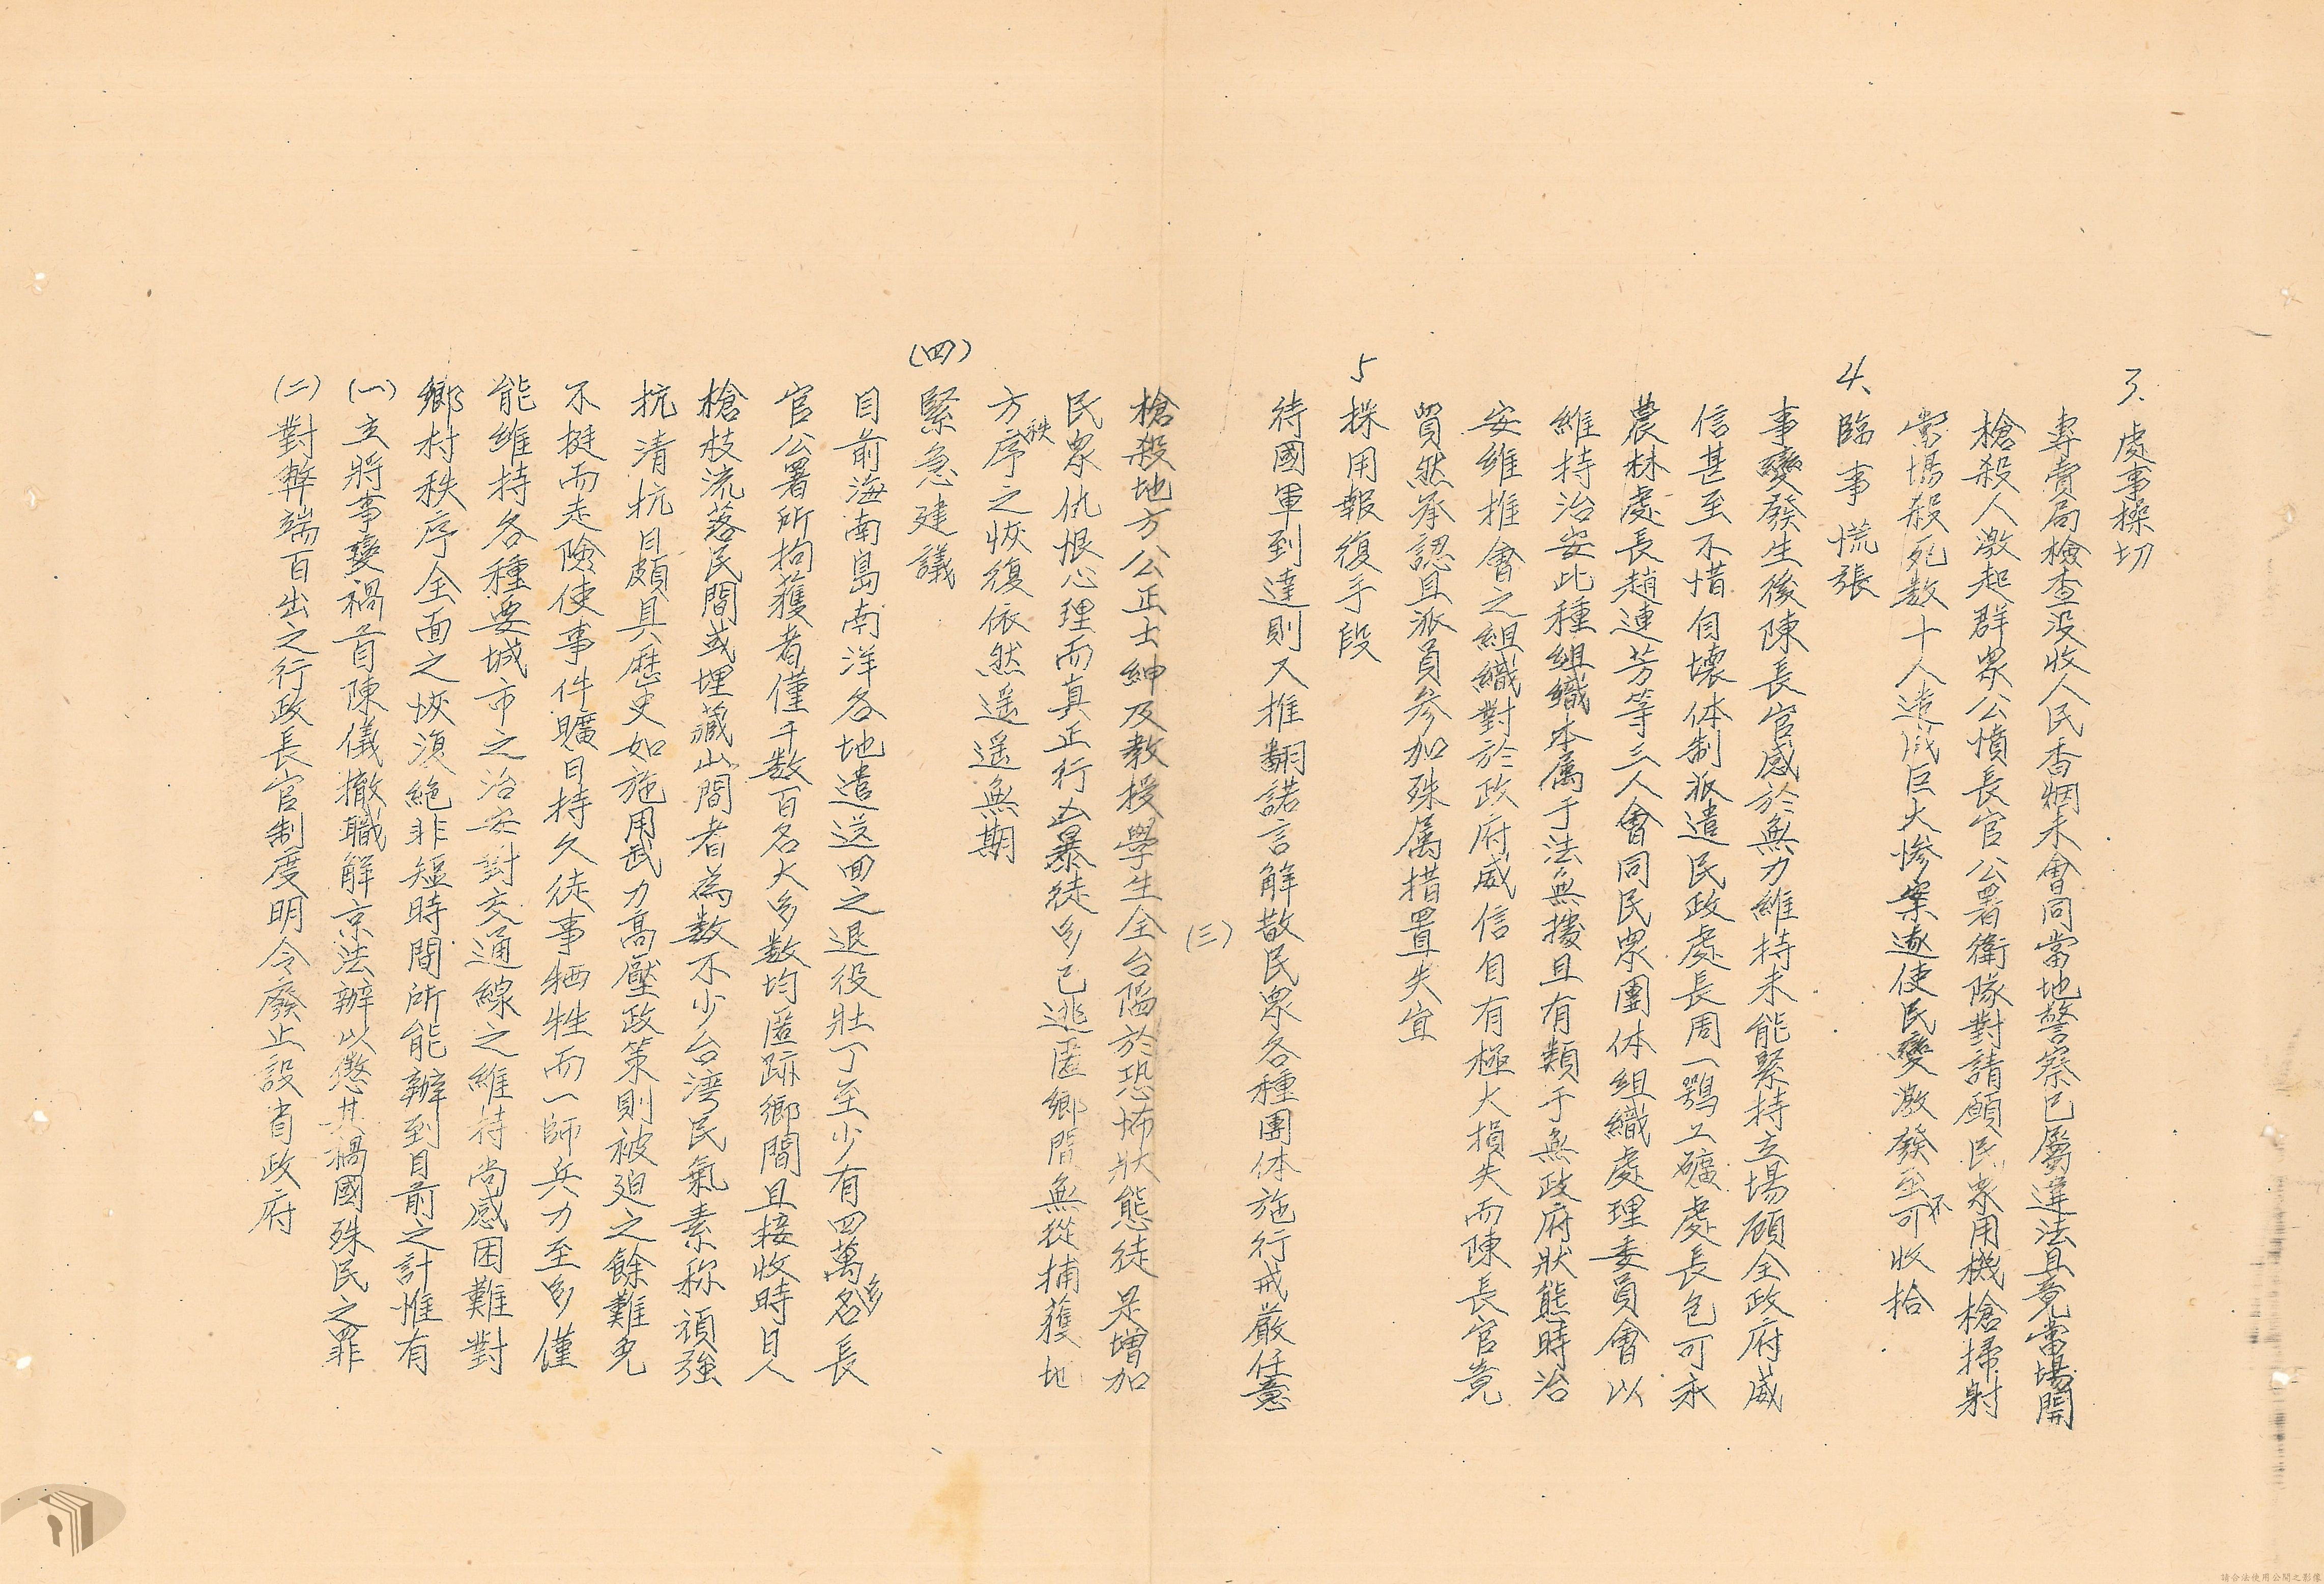 3、處事操切
專賣局檢查没收人民香烟未會同當地警察已屬違法且竟當場開
槍殺人激起群眾公憤長官公署衛隊對請願民眾用機槍掃射
當場殺死数十人造成巨大慘案遂使民變激發至不可收拾
4、臨事慌張
事變發生後陳長官感於無力維持未能緊持立場顧全政府威
信甚至不惜自壞体制派遣民政處長周一鶚工礦處長包可永
農林處長趙連芳等三人會同民眾團体組織處理委員會以
維持治安此種組織本属于法無據且有類于無政府狀態時治
安維推會之組織對於政府威信自有極大損失而陳長官竟
貿然承認且派員参加殊属措置失宜
5採用報復手段
待國軍到達則又推翻諾言解散民眾各種團体施行戒嚴任意
(三)
槍殺地方公正士紳及教授學生全台陷於恐怖狀態徒足增加
民眾仇恨心理而真正行凶暴徒多已逃匿鄉間無從捕獲地
方秩序之恢復依然遥遥無期
(四)緊急建議
目前海南島南洋各地遣送回之退役壯丁至少有四萬多名長
官公署所拘獲者僅千数百名大多数均匿跡鄉間且接收時日人
槍枝流落民間或埋藏山間者為数不少台湾民氣素称頑強
抗清抗日頗具歷史如施用武力高壓政策則被迫之餘難免
不挺而走險使事件曠日持久徒事牺牲而一師兵力至多僅
能維持各種要城市之治安對交通線之維持尚感困難對
鄉村秩序全面之恢須絕非短時間所能辦到目前之計惟有
(一)立將事變禍首陳儀撤職解京法辦以懲其禍國殊民之罪
(二)對弊端百出之行政長官制度明令廢止設省政府
請合法使用公開之影像